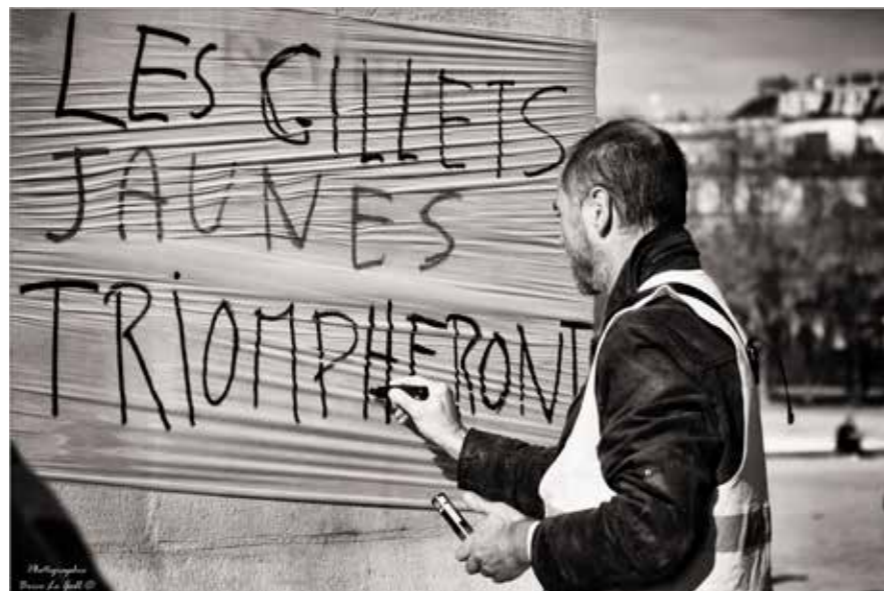 LES GILLETS
JAUNES
TRIOMPHERONT
Photographie
Brice Le Gall ©